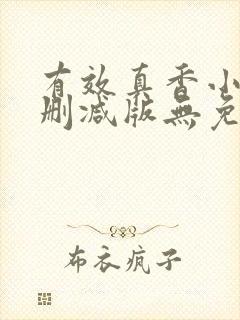 有效真香小
删减版無免
布衣疯子